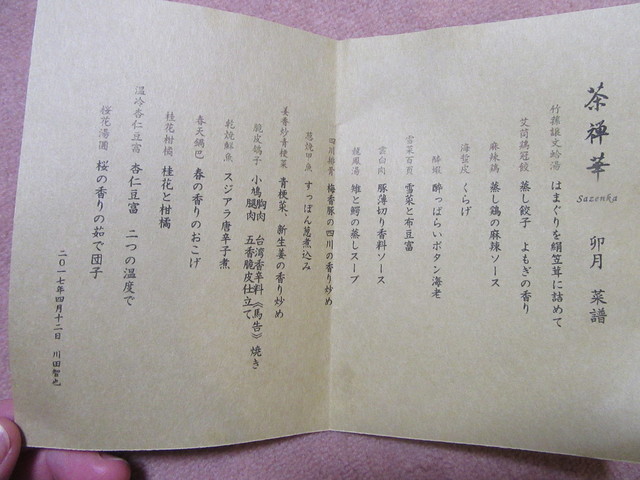 茶禅華 Sazenka 卯月 菜譜
竹蓀譲文蛤湯 はまぐりを絹笠茸に詰めて
艾茼鶏冠餃 蒸し餃子 よもぎの香り
麻辣鶏 蒸し鶏の麻辣ソース
海蜇皮 くらげ
酔蝦 酔っぱらいボタン海老
雪菜百頁 雪菜と布豆富
雲白肉 豚薄切り香料ソース
雉と鰐の蒸しスープ
四川排骨 梅香豚の四川の香り炒め
葱焼甲魚 すっぽん葱煮込み
姜香炒青梗菜 青梗菜、新生姜の香り炒め
脆皮鴿子 小鳩胸肉 台湾香辛料《馬告》焼き
腿肉 五香脆皮仕立て
乾焼鮮魚 スジアラ唐辛子煮
春天鍋巴 春の香りのおこげ
桂花柑橘 桂花と柑橘
温冷杏仁豆富 杏仁豆富 二つの温度で
桜花湯圓 桜の香りの茹で団子
二〇一七年四月十二日 川田智也